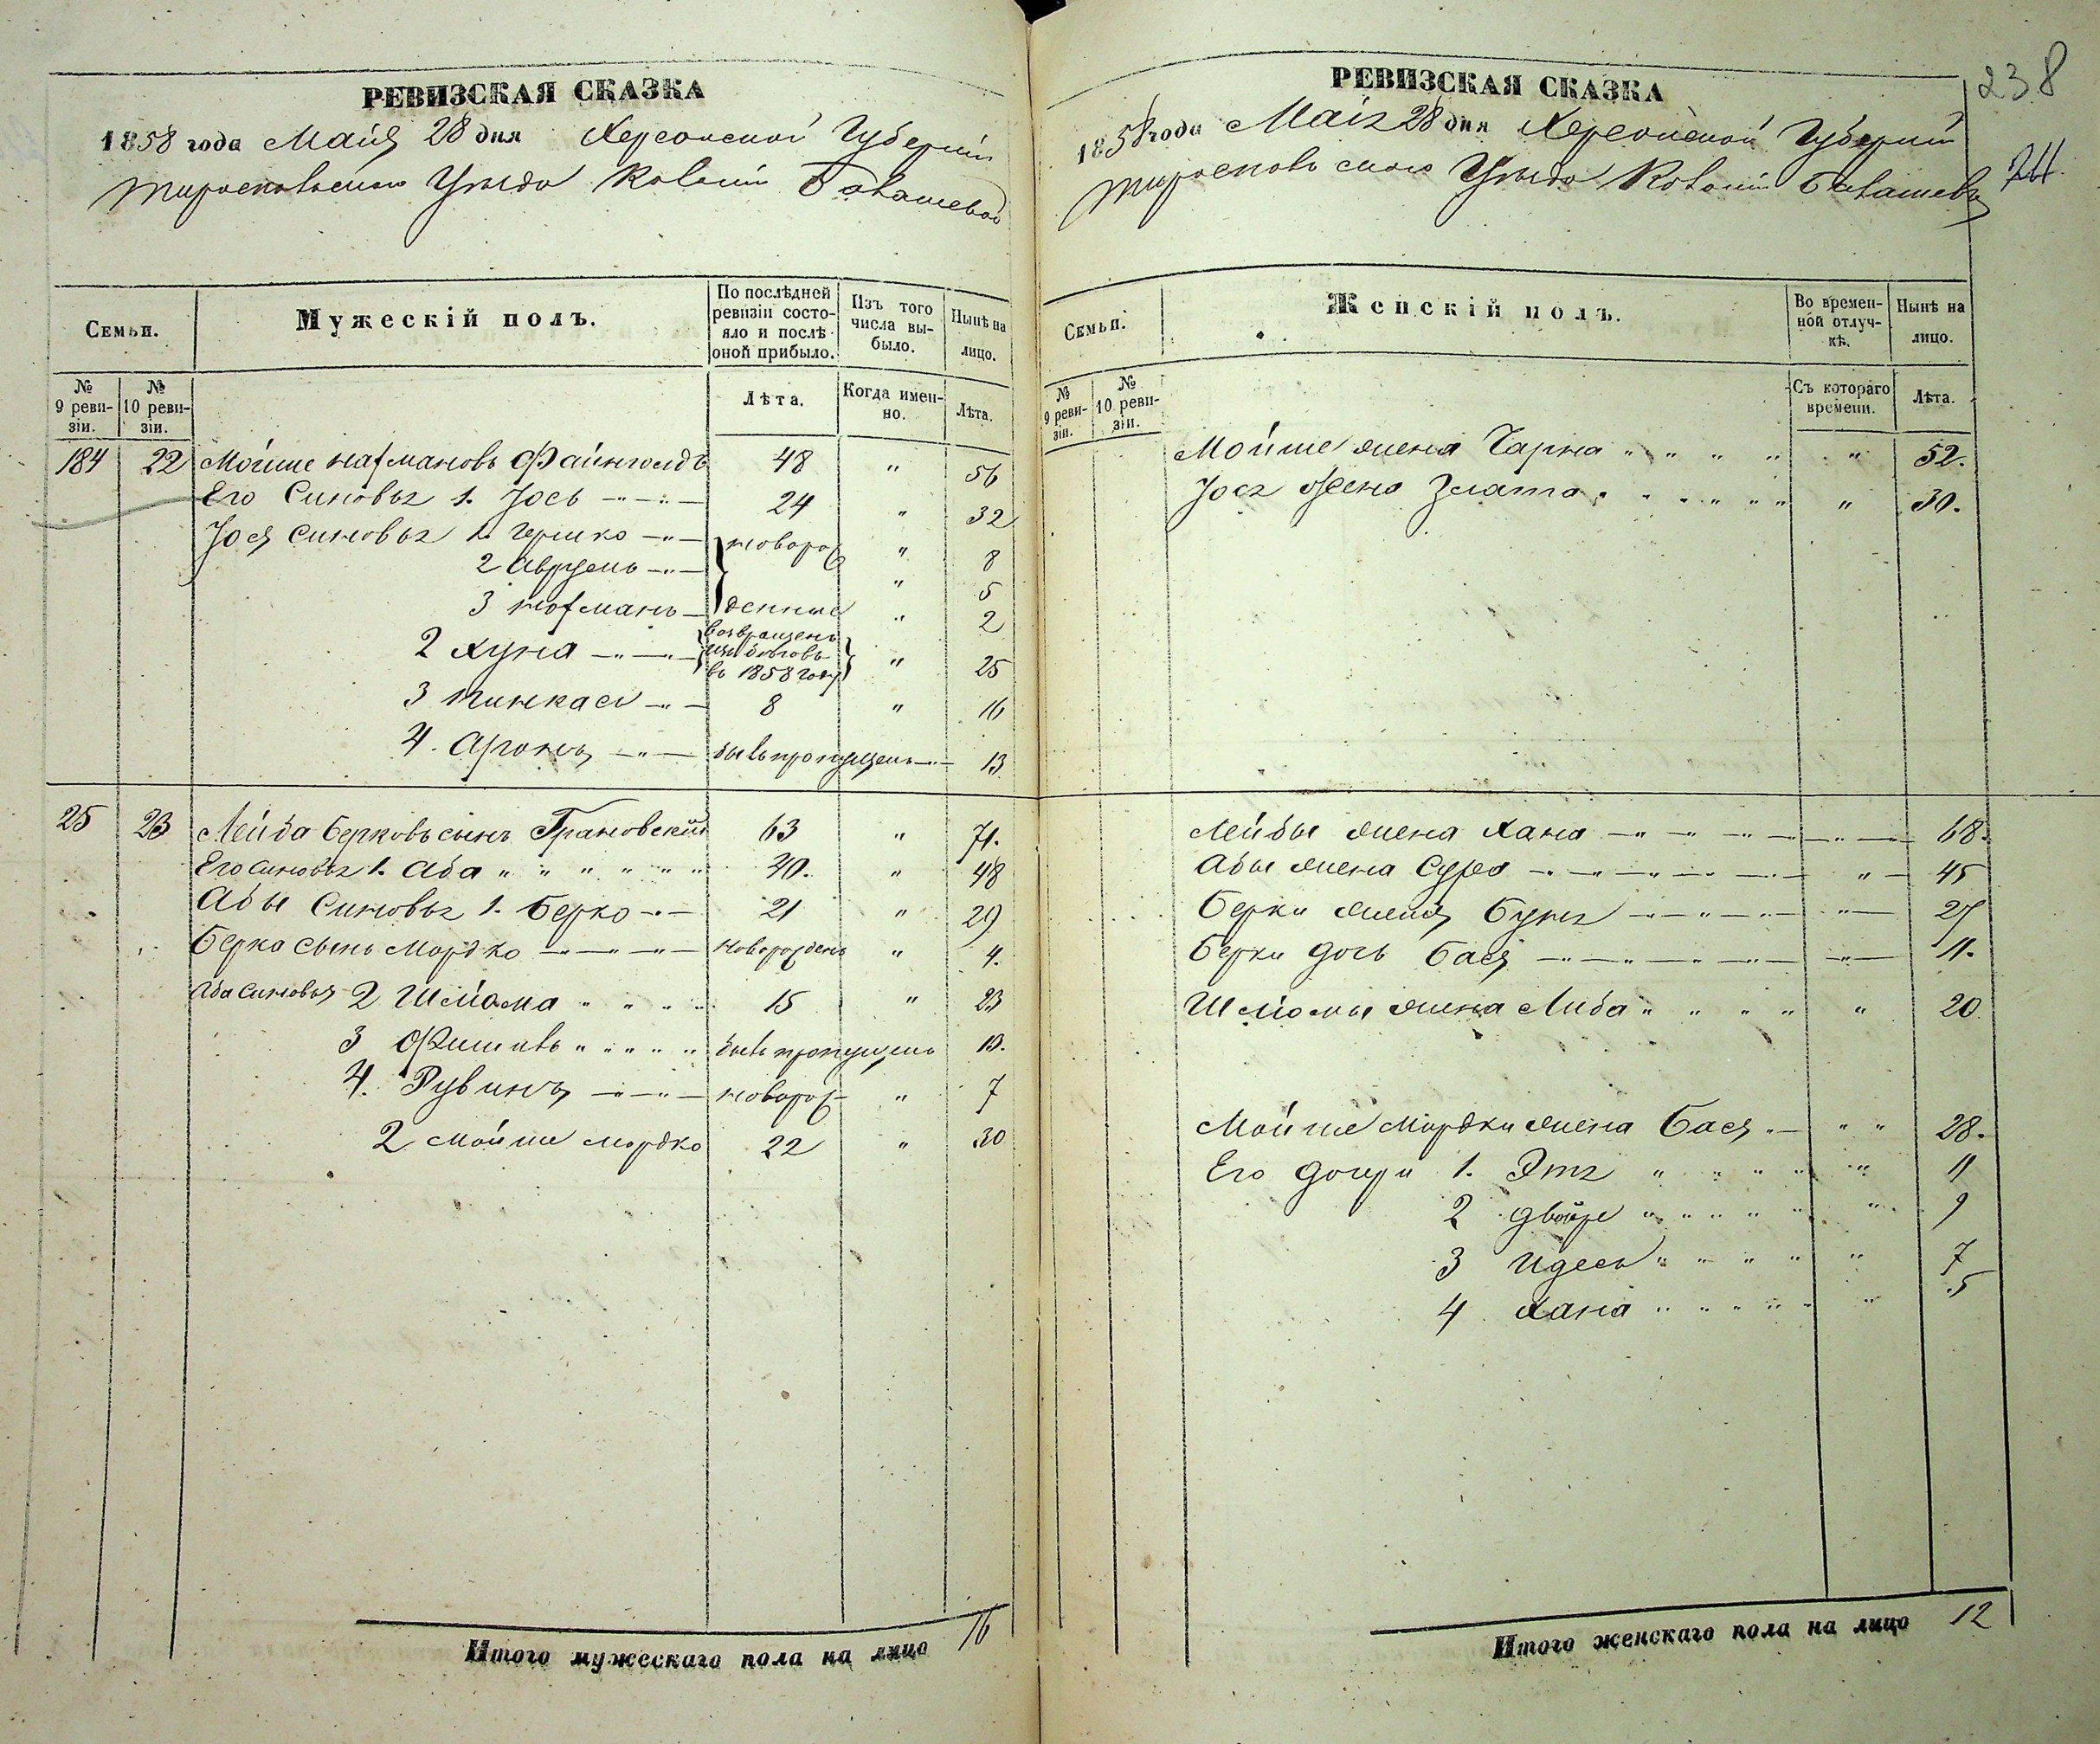 РЕВИЗСКАЯ СКАЗКА
1858 года Маія 28 дня Херсонской Губерніи
Тираспольскаго Уѣзда Колоніи
Семьи.
Мужескій полъ.
По послѣдней ревизіи состояло и послѣ оной прибыло.
Изъ того числа выбыло.
Нынѣ на лицо.
№ 9 ревизіи.
№ 10 ревизіи.
Лѣта.
Когда именно.
Лѣта.
184 22 Мойше Нахмановъ Файнголдъ 48 " 56
Его Синовья 1. Іось 24 " 32
Іося синовья 1. Гершко новорож " 8
2 Аврумъ " 5
3 Нохманъ денные " 2
2 Хуна возвращенъ изъ бѣговъ въ 1858 году " 25
3 Пинкась 8 " 16
4. Аронъ былъ пропущенъ 13
25 23 Лейба Берковъ сынъ Грановский 63 " 71.
Его синовья 1. Аба " " " " " " 40. " 48
Абы Синовья 1. Берко 21 " 29
Берка сынъ Мордко новорожденъ " 4.
Аба Синовья 2 Шліома " " " " 15 " 23
3 Фишель " " " " " былъ пропущенъ 13.
4. Рувинъ новорож " 7
2 Мойше Мордко 22 " 30
Итого мужескаго пола на лицо 16
238
РЕВИЗСКАЯ СКАЗКА
1858 года Маія 28 дня Херсонской Губерніи
Тираспольскаго Уѣзда Колоніи
Семьи.
Женскій полъ.
Во временной отлучкѣ.
Нынѣ на лицо.
№ 9 ревизіи.
№ 10 ревизіи.
Съ котораго времени.
Лѣта.
Мойше жена Чарна " " " " " 52.
Іося жена Злата " " " " " " 30.
Лейбы жена Хана 68.
Абы жена Сура " 45
Берки жена Буня " 27
Берки дочь Бася " 11.
Шліомы жена Либа " " " " " 20
Мойше Мордки жена Бася " " 28.
Его дочери 1. Этя " " " " " 11
2 Двойре " " " " " " 9
3 Идесь " " " " " 7
4 Хана " " " " " " 5
Итого женскаго пола на лицо 12